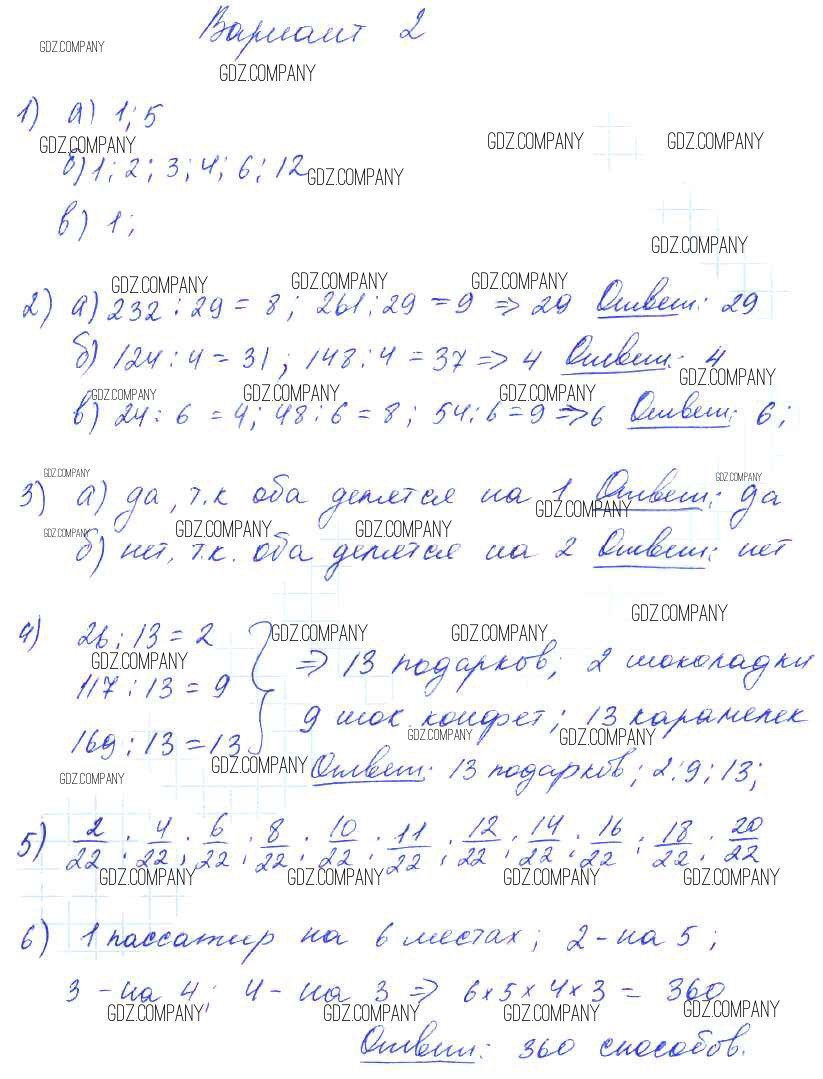 Вариант 2
GDZ.COMPANY
GDZ.COMPANY
1) а) 1; 5
GDZ.COMPANY GDZ.COMPANY GDZ.COMPANY
б) 1; 2; 3; 4; 6; 12
GDZ.COMPANY
в) 1;
GDZ.COMPANY
GDZ.COMPANY GDZ.COMPANY GDZ.COMPANY
2) а) 232 : 29 = 8; 261 : 29 = 9 => 29 Ответ: 29
б) 124 : 4 = 31; 148 : 4 = 37 => 4 Ответ: 4
GDZ.COMPANY
GDZ.COMPANY GDZ.COMPANY GDZ.COMPANY
в) 24 : 6 = 4; 48 : 6 = 8; 54 : 6 = 9 => 6 Ответ: 6;
GDZ.COMPANY GDZ.COMPANY
3) а) да, т.к оба делятся на 1 Ответ: да
GDZ.COMPANY
GDZ.COMPANY GDZ.COMPANY GDZ.COMPANY
б) нет, т.к. оба делятся на 2 Ответ: нет
GDZ.COMPANY
4) 26 : 13 = 2
GDZ.COMPANY GDZ.COMPANY
GDZ.COMPANY
=> 13 подарков; 2 шоколадки
117 : 13 = 9
9 шок. конфет; 13 карамелек
GDZ.COMPANY GDZ.COMPANY
169 : 13 = 13
GDZ.COMPANY
Ответ: 13 подарков; 2; 9; 13;
GDZ.COMPANY
5) 2/22; 4/22; 6/22; 8/22; 10/22; 11/22; 12/22; 14/22; 16/22; 18/22; 20/22
GDZ.COMPANY GDZ.COMPANY GDZ.COMPANY GDZ.COMPANY
6) 1 пассажир на 6 местах; 2 - на 5;
3 - на 4; 4 - на 3 => 6 x 5 x 4 x 3 = 360
GDZ.COMPANY GDZ.COMPANY GDZ.COMPANY GDZ.COMPANY
Ответ: 360 способов.